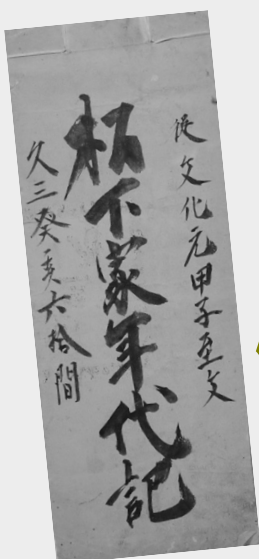 従文化元甲子至文
松下家年代記
久三癸亥六拾間